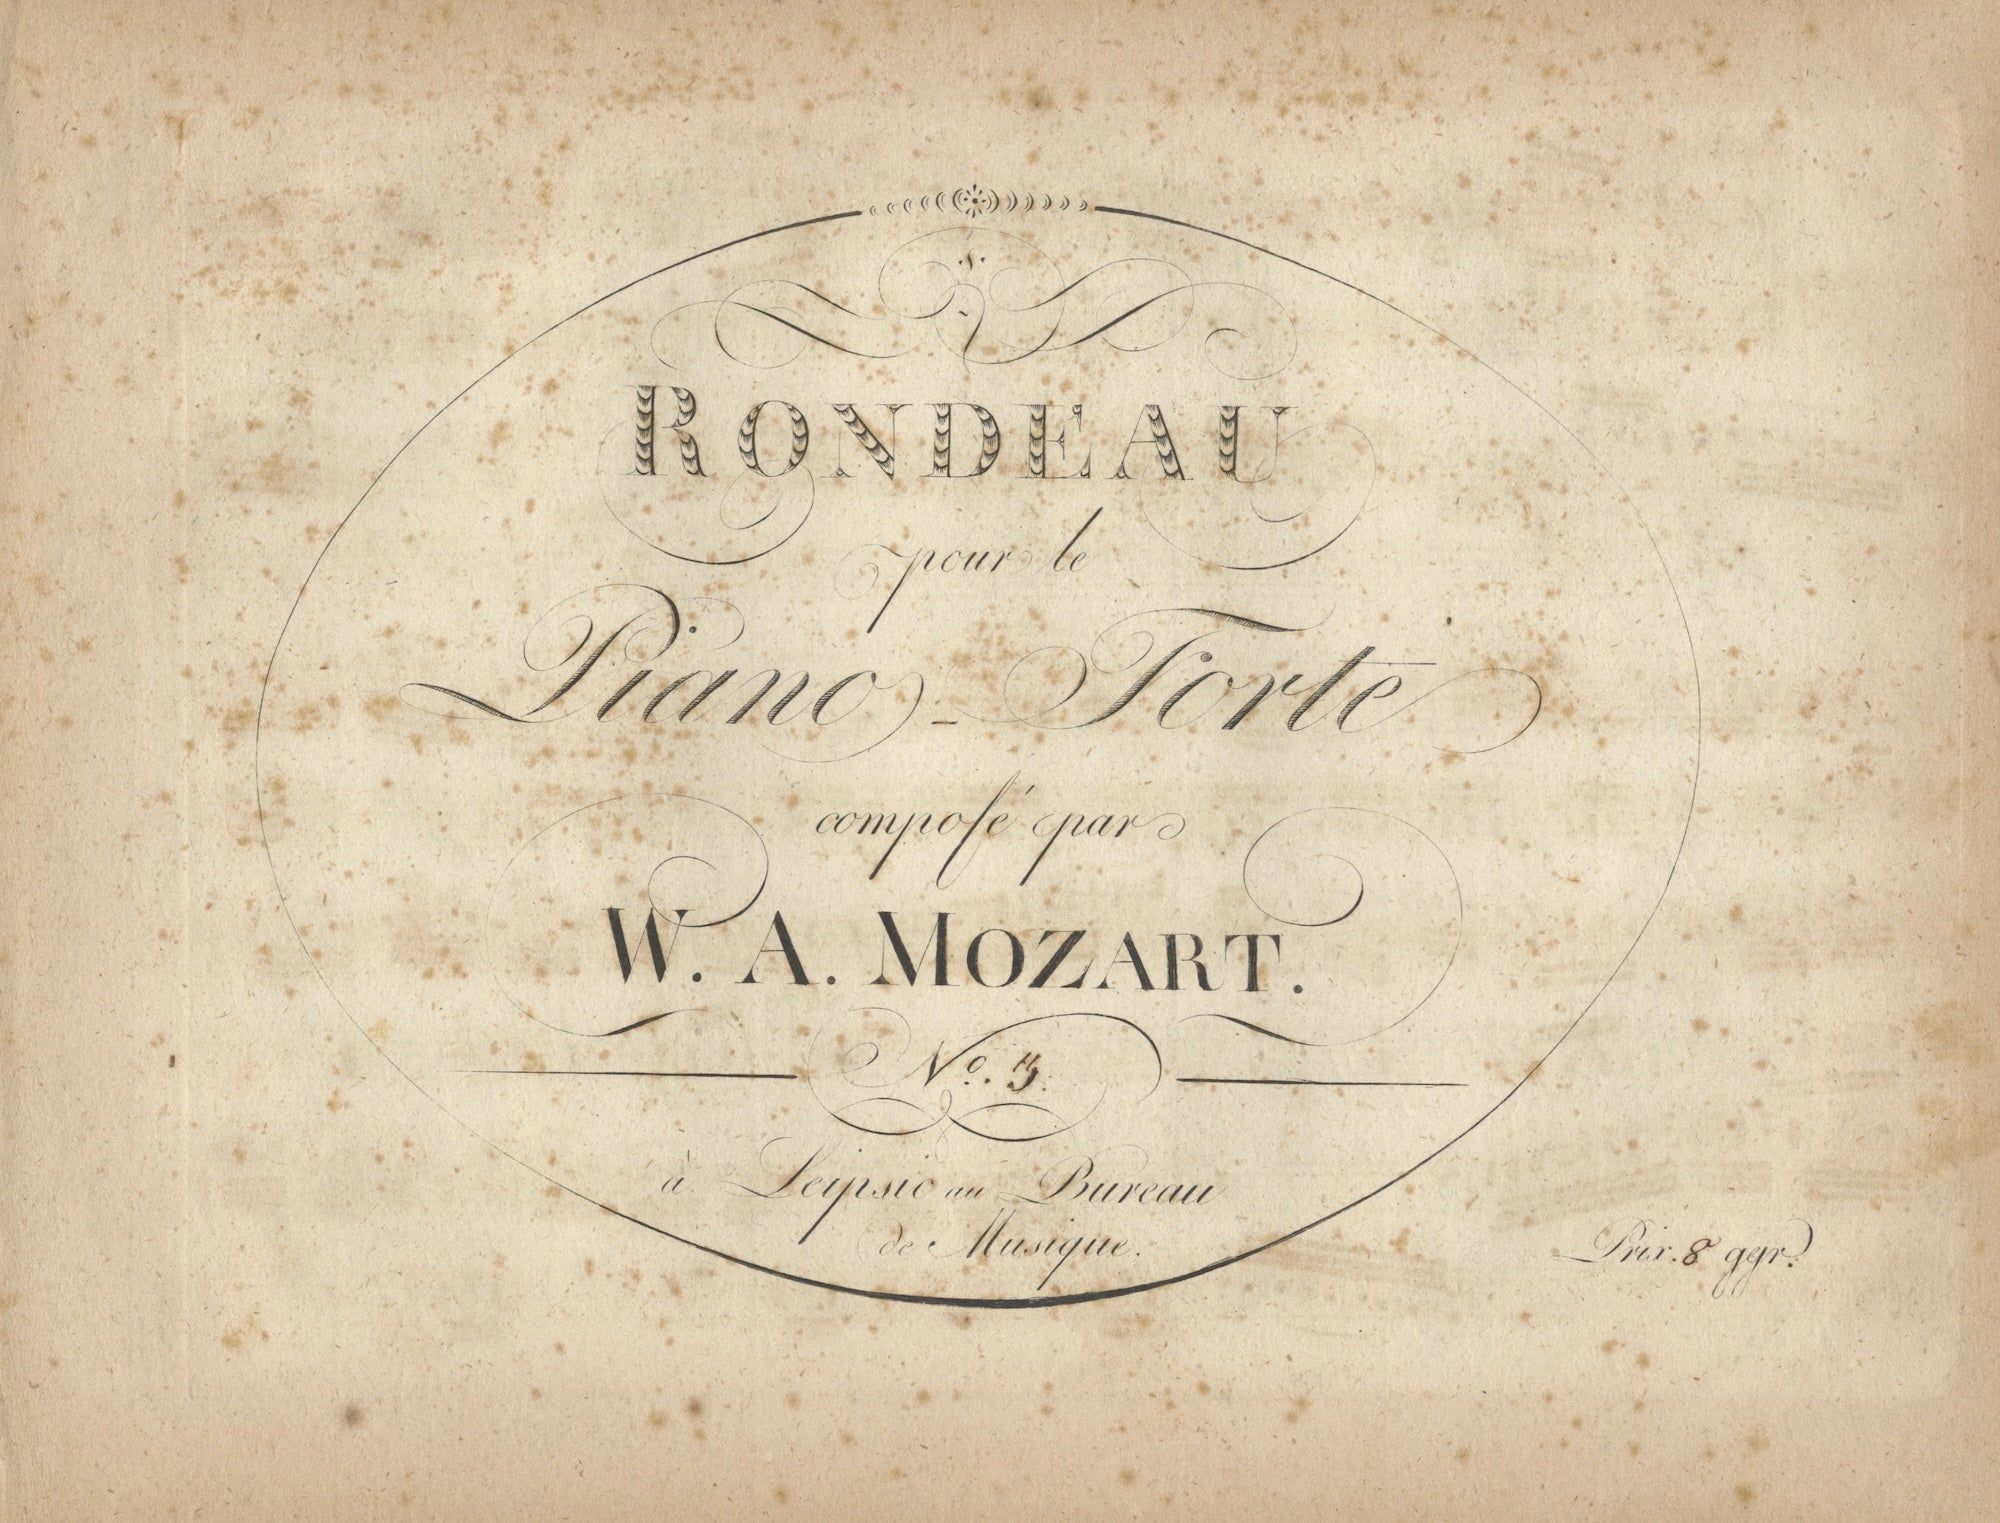 RONDEAU
pour le
Piano-Forte
compoſé par
W. A. MOZART.
No.
à Leipsic au Bureau
de Musique.
Prix. 8 ggr.